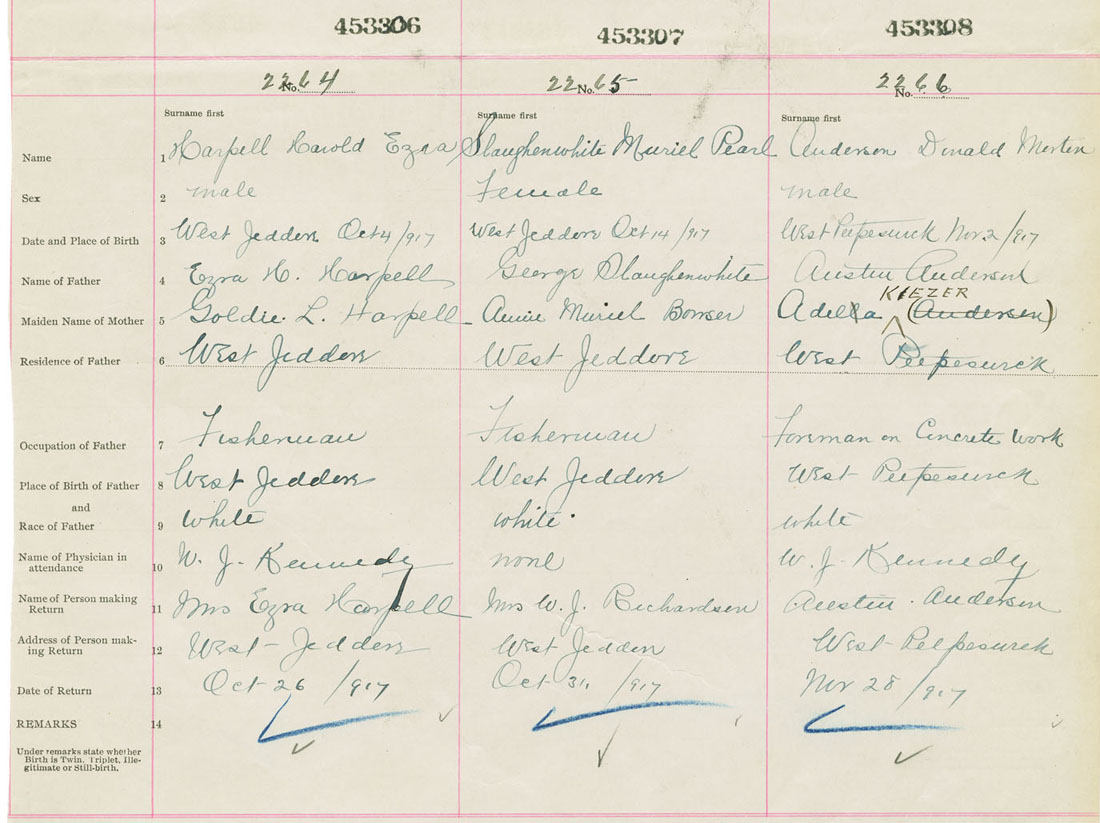 453306 453307 453308
2264 No. 2265 No. 2266 No.
Surname first Surname first Surname first
Name 1 Harpell Harold Ezra Slaughenwhite Muriel Pearl Anderson Donald Merten
Sex 2 male Female male
Date and Place of Birth 3 West Jeddore Oct 4/917 West Jeddore Oct 14/917 West Petpeswick Nov. 2/917
Name of Father 4 Ezra H. Harpell George Slaughenwhite Austin Anderson
KIEZER
Maiden Name of Mother 5 Goldie. L. Harpell Annie Muriel Bowser Adella (Anderson)
Residence of Father 6 West Jeddore West Jeddore West Petpeswick
Occupation of Father 7 Fisherman Fisherman Foreman on Concrete Work
Place of Birth of Father 8 West Jeddore West Jeddore West Petpeswick
and
Race of Father 9 white white white
Name of Physician in
attendance 10 W. J. Kennedy none W. J. Kennedy
Name of Person making
Return 11 Mrs Ezra Harpell Mrs W. J. Richardson Austin Anderson
Address of Person mak-
ing Return 12 West-Jeddore West Jeddore West Petpeswick
Date of Return 13 Oct 26/917 Oct 31, /917 Nov 28/917
REMARKS 14
Under remarks state whether
Birth is Twin. Triplet, Ille-
gitimate or Still-birth.